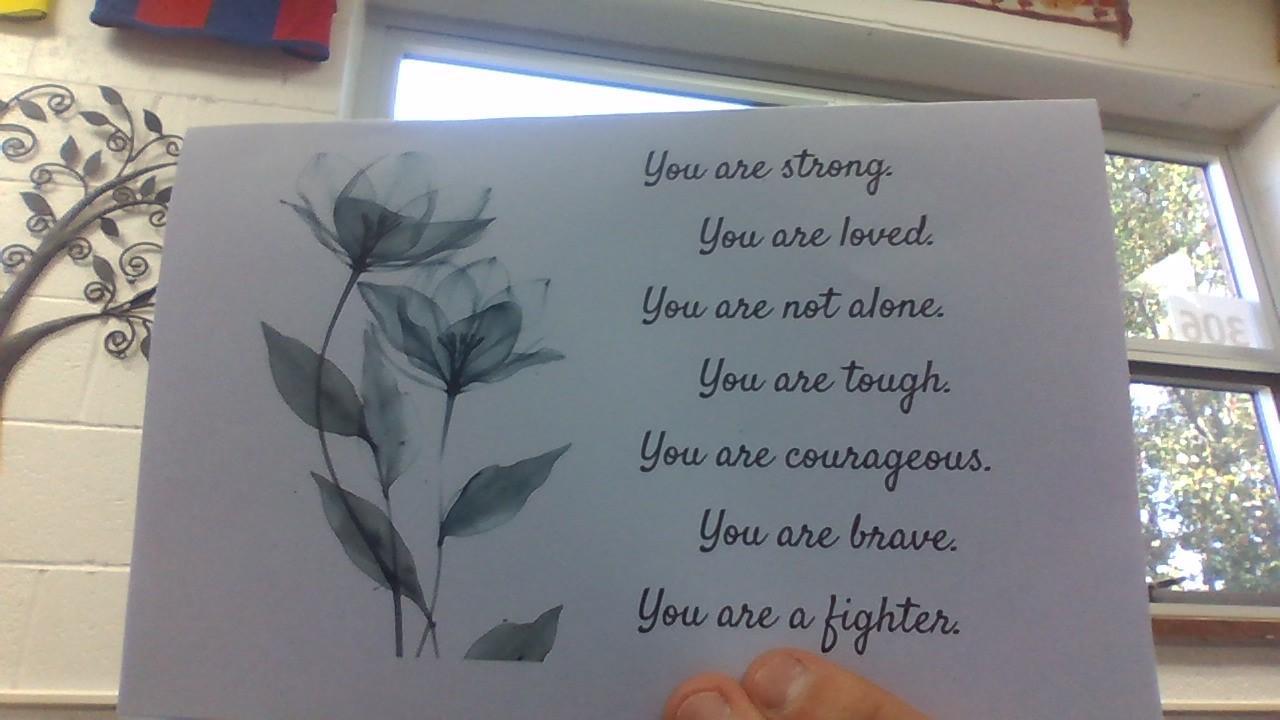 You are strong.
You are loved.
You are not alone.
You are tough.
You are courageous.
You are brave.
You are a fighter.
306